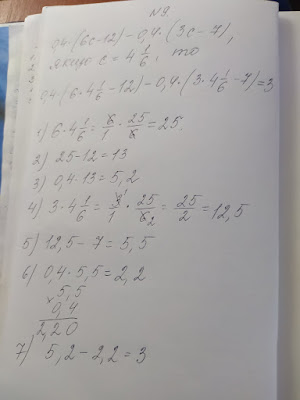 №9.
0,4·(6c-12)-0,4·(3c-7),
якщо c=4 1/6, то
0,4·(6·4 1/6-12)-0,4·(3·4 1/6-7)=3
1) 6·4 1/6=6/1·25/6=25.
2) 25-12=13
3) 0,4·13=5,2
4) 3·4 1/6=3¹/1·25/6₂=25/2=12,5
5) 12,5-7=5,5
6) 0,4·5,5=2,2
×5,5
0,4
2,20
7) 5,2-2,2=3